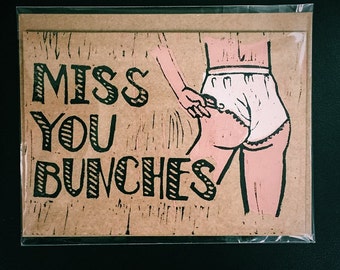 MISS
YOU
BUNCHES